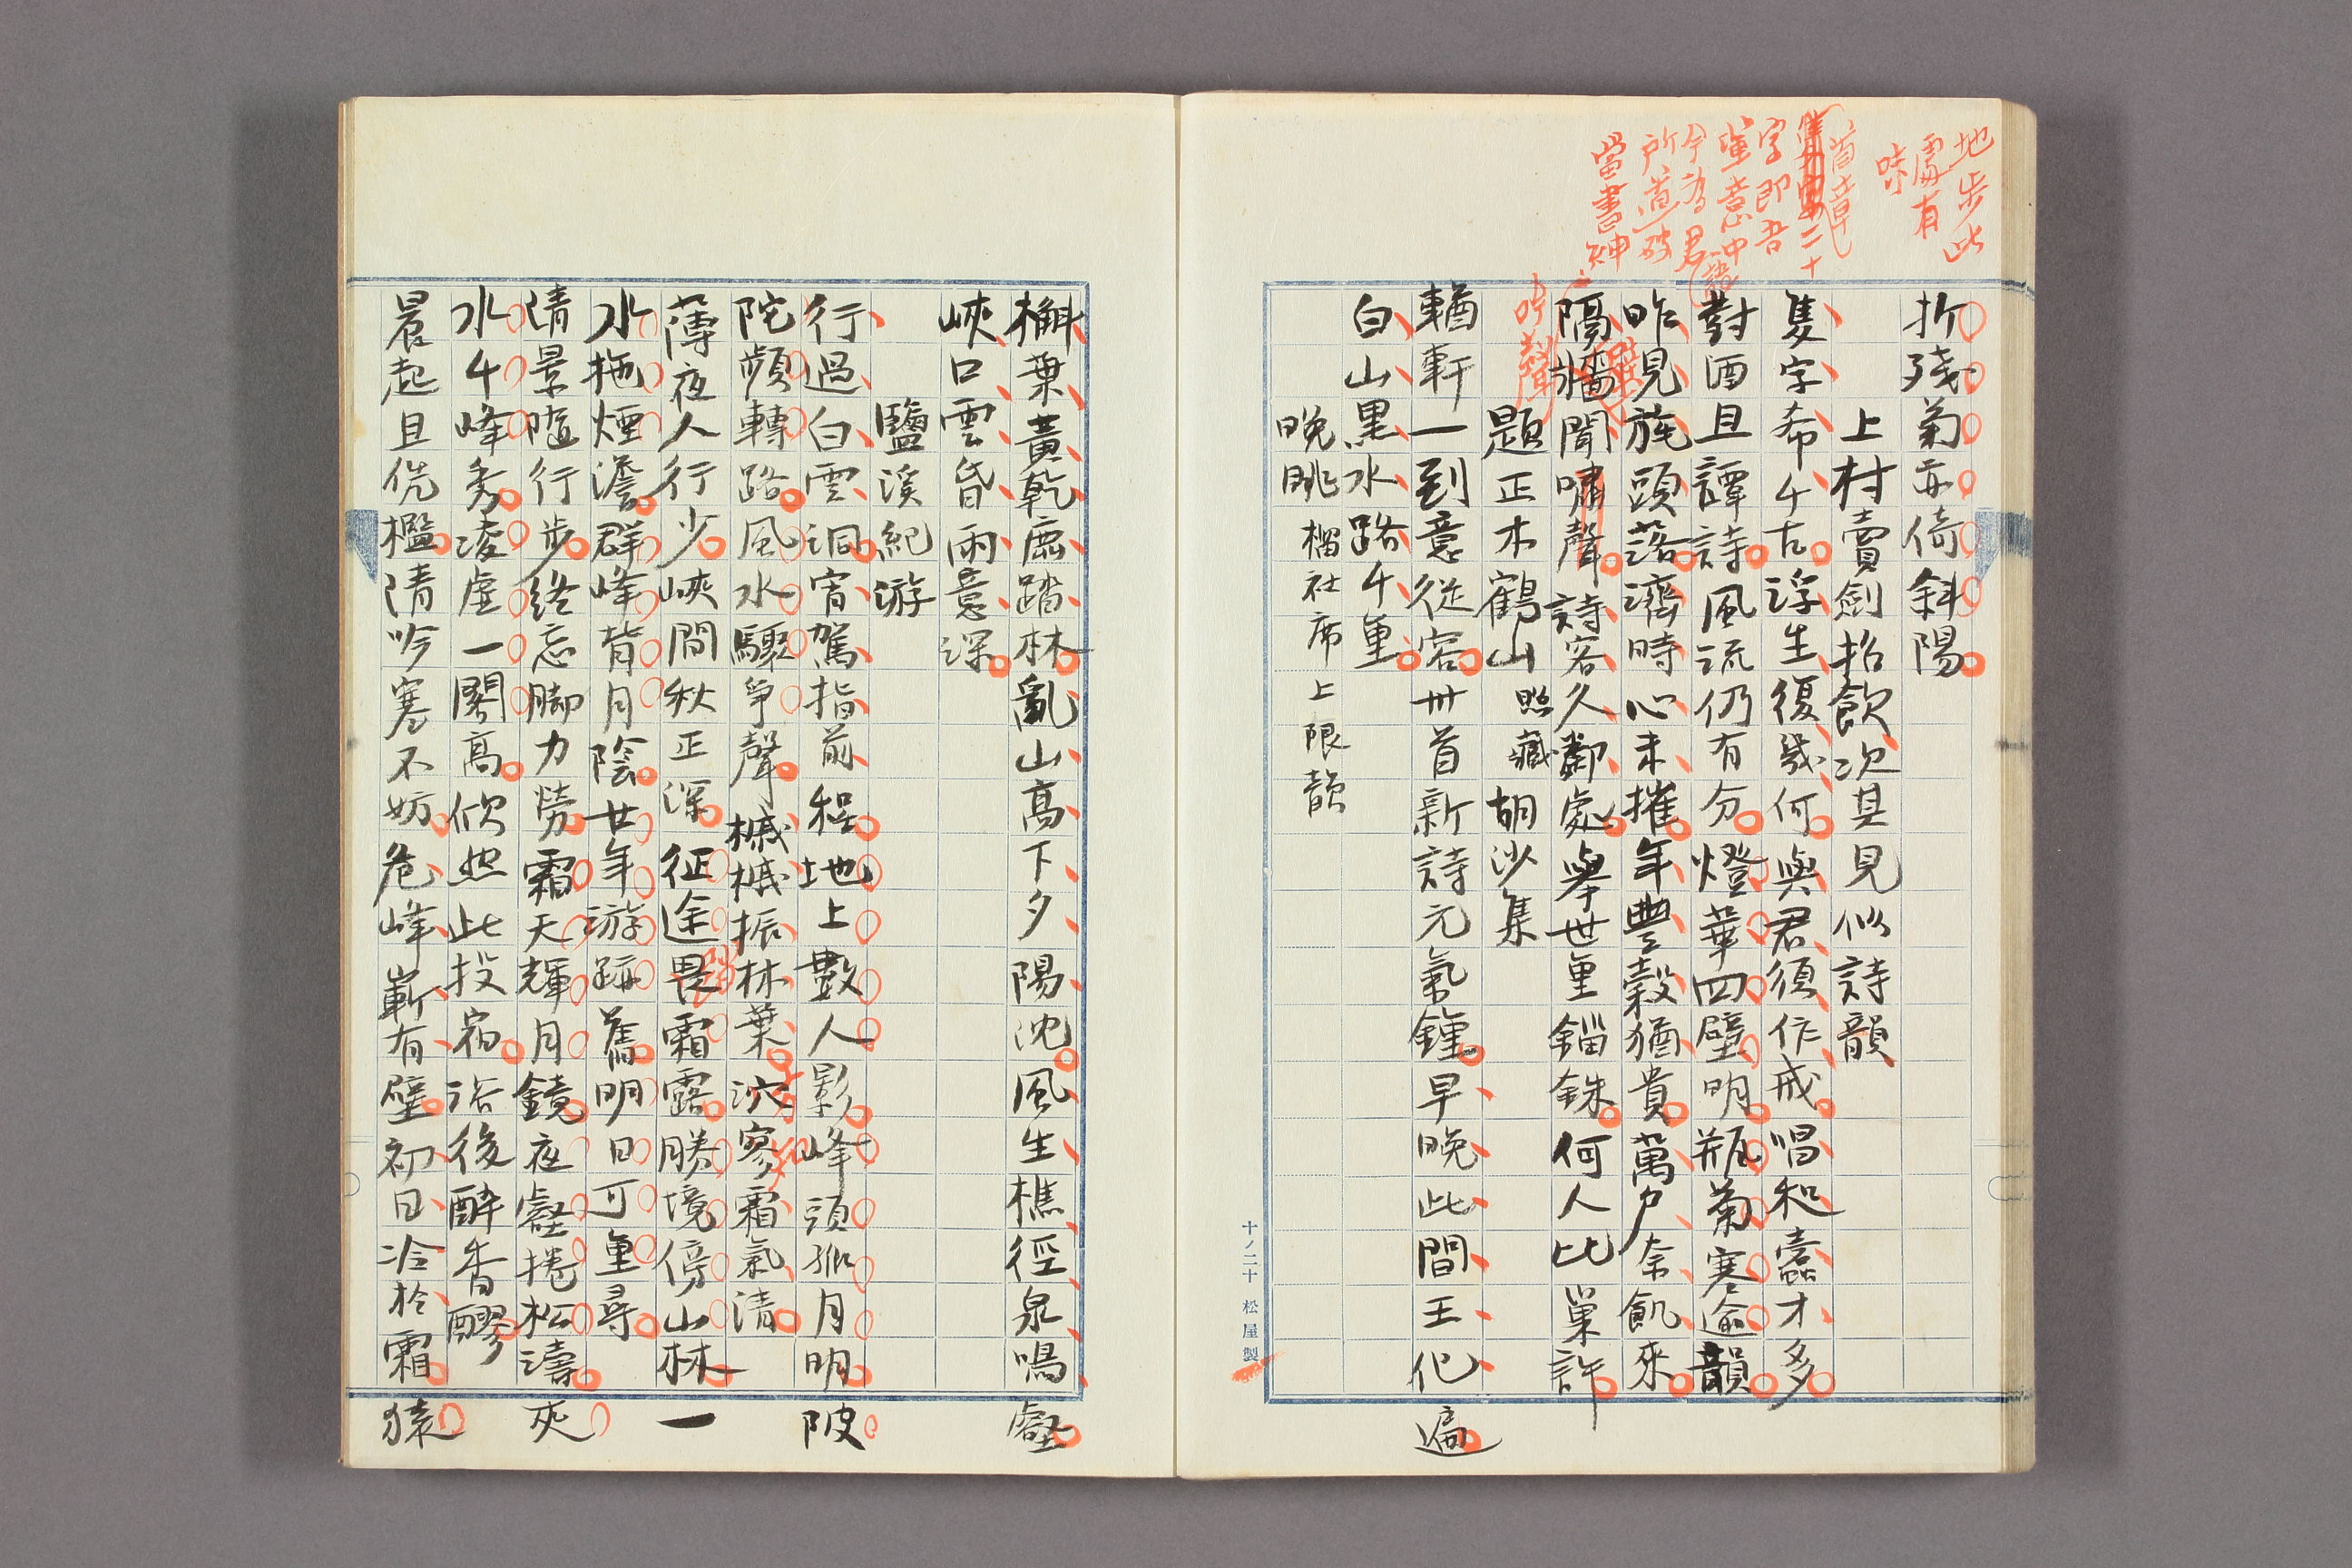 地步此
處有
味
首章
隻字二十
字即吾
輩意中語
今為君
所道破
當書紳
折殘菊亦倚斜陽
上村賣劍招飲次其見似詩韻
隻字希千古浮生復幾何與君須作戒唱和蠹才多
對酒且譚詩風流仍有分燈華四壁明瓶菊寒逾韻
昨見旄頭落濟時心未摧年豐穀猶貴萬戶奈飢來
隔牆聞嘯聲詩客久鄰處舉世重錙銖何人比巢許
吟聲
題正木鶴山照藏胡沙集
輶軒一到意從容卅首新詩元氣鍾早晚此間王化遍
白山黑水路千重
晚眺榴社席上限韻
十ノ二十 松屋製
槲葉黃乾鹿踏林亂山高下夕陽沈風生樵徑泉鳴壑
峽口雲昏雨意深
鹽溪紀游
行過白雲洞宵駕指前程地上數人影峰頭孤月明陂
陀頻轉路風水驟爭聲槭槭振林葉泬寥霜氣清
薄夜人行少峽間秋正深征途畏霜露勝境傍山林一
水拖煙澹群峰背月陰廿年游跡舊明日可重尋
清景隨行步終忘腳力勞霜天輝月鏡夜壑捲松濤夾
水千峰秀凌虛一閣高欣然此投宿浴後醉香醪
晨起且凭檻清吟寒不妨危峰嶄有壁初日冷於霜猿